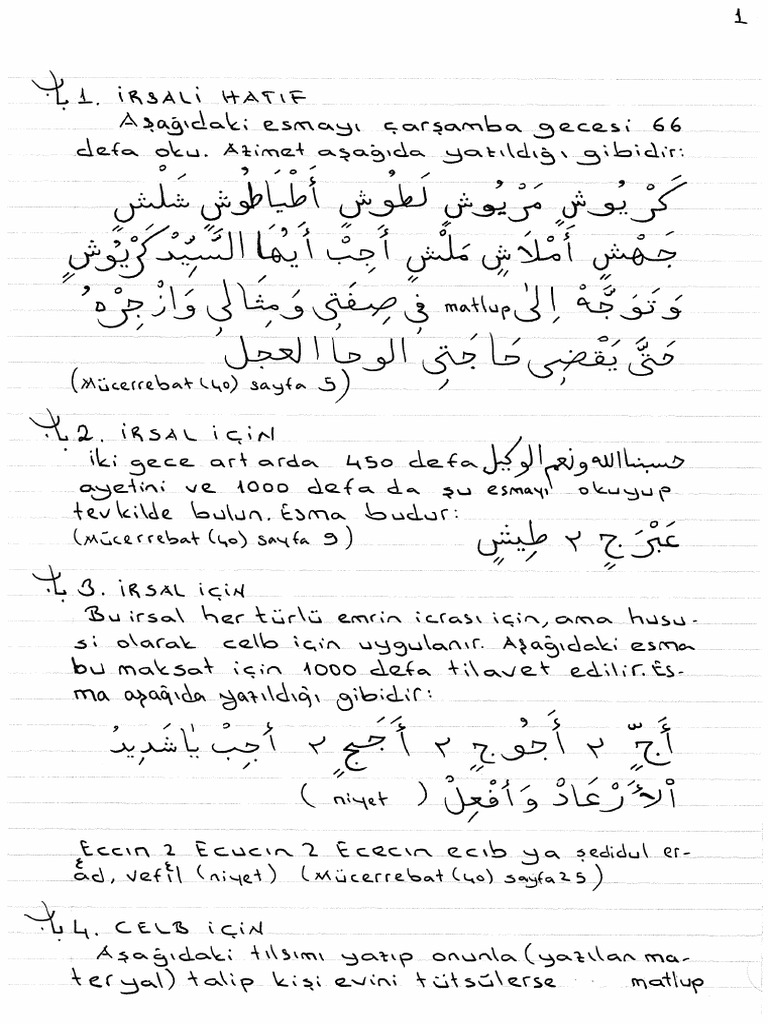 1
باب 1. İRSALİ HATIF
Aşağıdaki esmayı çarşamba gecesi 66
defa oku. Azimet aşağıda yazıldığı gibidir:
كَرْيُوشٍ مَرْيُوشٍ لَطُوشٍ أَطْيَاطُوشٍ شَلْشٍ
جَهْشٍ أَمْلَاشٍ مَلْشٍ أَجِبْ أَيُّهَا السَّيِّدْ كَرْيُوشٍ
وَتَوَجَّهْ اِلىٰ matlup فِي صِفَتِي وَمِثَالِي وَازْجِرْهُ
حَتَّى يَقْضِى حَاجَتِى الوحا العجل
(Mücerrebat (40) sayfa 5)
باب 2. İRSAL İÇİN
iki gece art arda 450 defa حسبنا الله ونعم الوكيل
ayetini ve 1000 defa da şu esmayı okuyup
tevkilde bulun. Esma budur:
(Mücerrebat (40) sayfa 9) عَبْرَجٍ ٢ طِيشٍ
باب 3. İRSAL İÇİN
Bu irsal her türlü emrin icrası için, ama husu-
si olarak celb için uygulanır. Aşağıdaki esma
bu maksat için 1000 defa tilavet edilir. Es-
ma aşağıda yazıldığı gibidir:
أَجٍّ ٢ أَجُوجٍ ٢ أَجَجٍ ٢ أَجِبْ يَا شَدِيدُ
اْلأَرْعَادْ وَأَفْعِلْ ( niyet )
Eccin 2 Ecucin 2 Ececin ecib ya şedidul er-
âd, vefil (niyet) (Mücerrebat (40) sayfa 25)
باب 4. CELB İÇİN
Aşağıdaki tılsımı yazıp onunla (yazılan ma-
teryal) talip kişi evini tütsülerse matlup